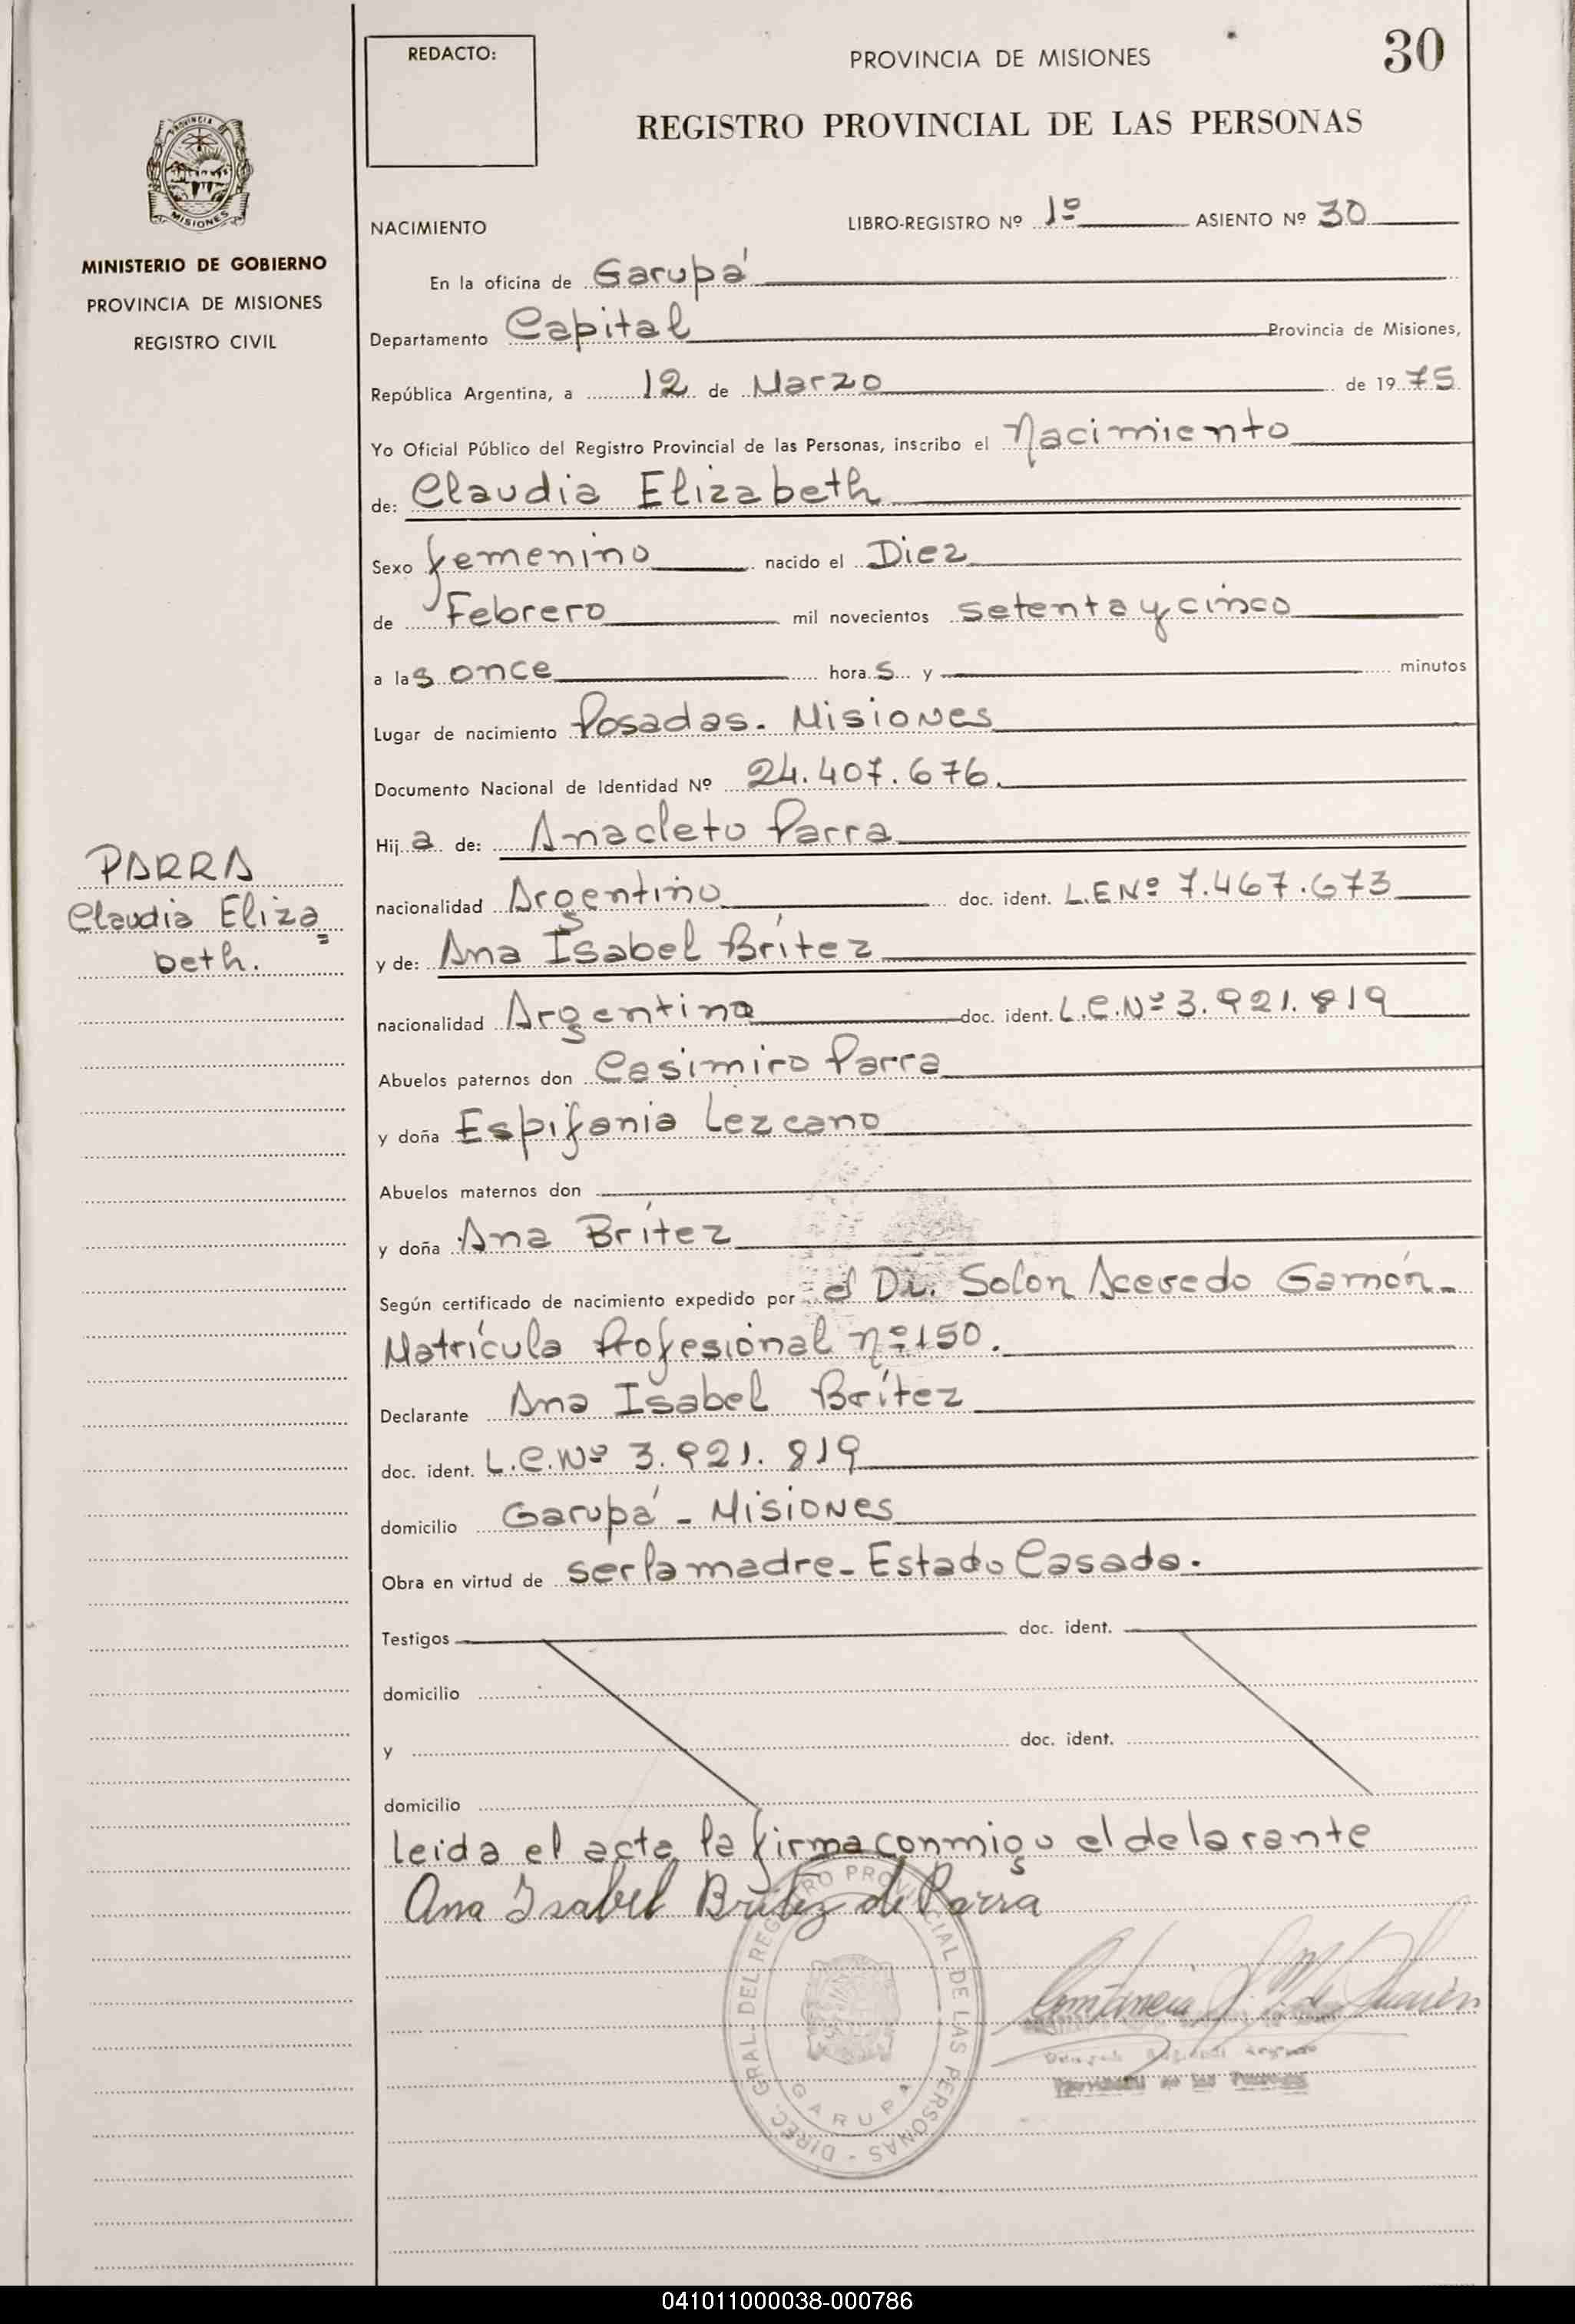 REDACTO:
PROVINCIA DE MISIONES
30
REGISTRO PROVINCIAL DE LAS PERSONAS
PROVINCIA DE
MISIONES
MINISTERIO DE GOBIERNO
PROVINCIA DE MISIONES
REGISTRO CIVIL
NACIMIENTO
LIBRO-REGISTRO Nº 1º ASIENTO Nº 30
En la oficina de Garupá
Departamento Capital Provincia de Misiones,
República Argentina, a 12 de Marzo de 1975
Yo Oficial Público del Registro Provincial de las Personas, inscribo el Nacimiento
de: Claudia Elizabeth
Sexo femenino nacido el Diez
de Febrero mil novecientos setenta y cinco
a las once horas y minutos
Lugar de nacimiento Posadas. Misiones
Documento Nacional de Identidad Nº 24.407.676.
Hija de: Anacleto Parra
PARRA
Claudia Eliza=
beth.
nacionalidad Argentino doc. ident. L.E Nº 7.467.673
y de: Ana Isabel Brítez
nacionalidad Argentina doc. ident. L.C.Nº 3.921.819
Abuelos paternos don Casimiro Parra
y doña Espifania Lezcano
Abuelos maternos don
y doña Ana Brítez
Según certificado de nacimiento expedido por el Dr. Solon Acevedo Gamón-
Matrícula Profesional nº 150.
Declarante Ana Isabel Brítez
doc. ident. L.C.Nº 3.921.819
domicilio Garupá - Misiones
Obra en virtud de ser la madre - Estado Casada.
Testigos doc. ident.
domicilio
y doc. ident.
domicilio
leida el acta la firma conmigo el delarante
Ana Isabel Britez de Parra
DIREC. GRAL. DEL REGISTRO PROVINCIAL DE LAS PERSONAS -
GARUPA
041011000038-000786